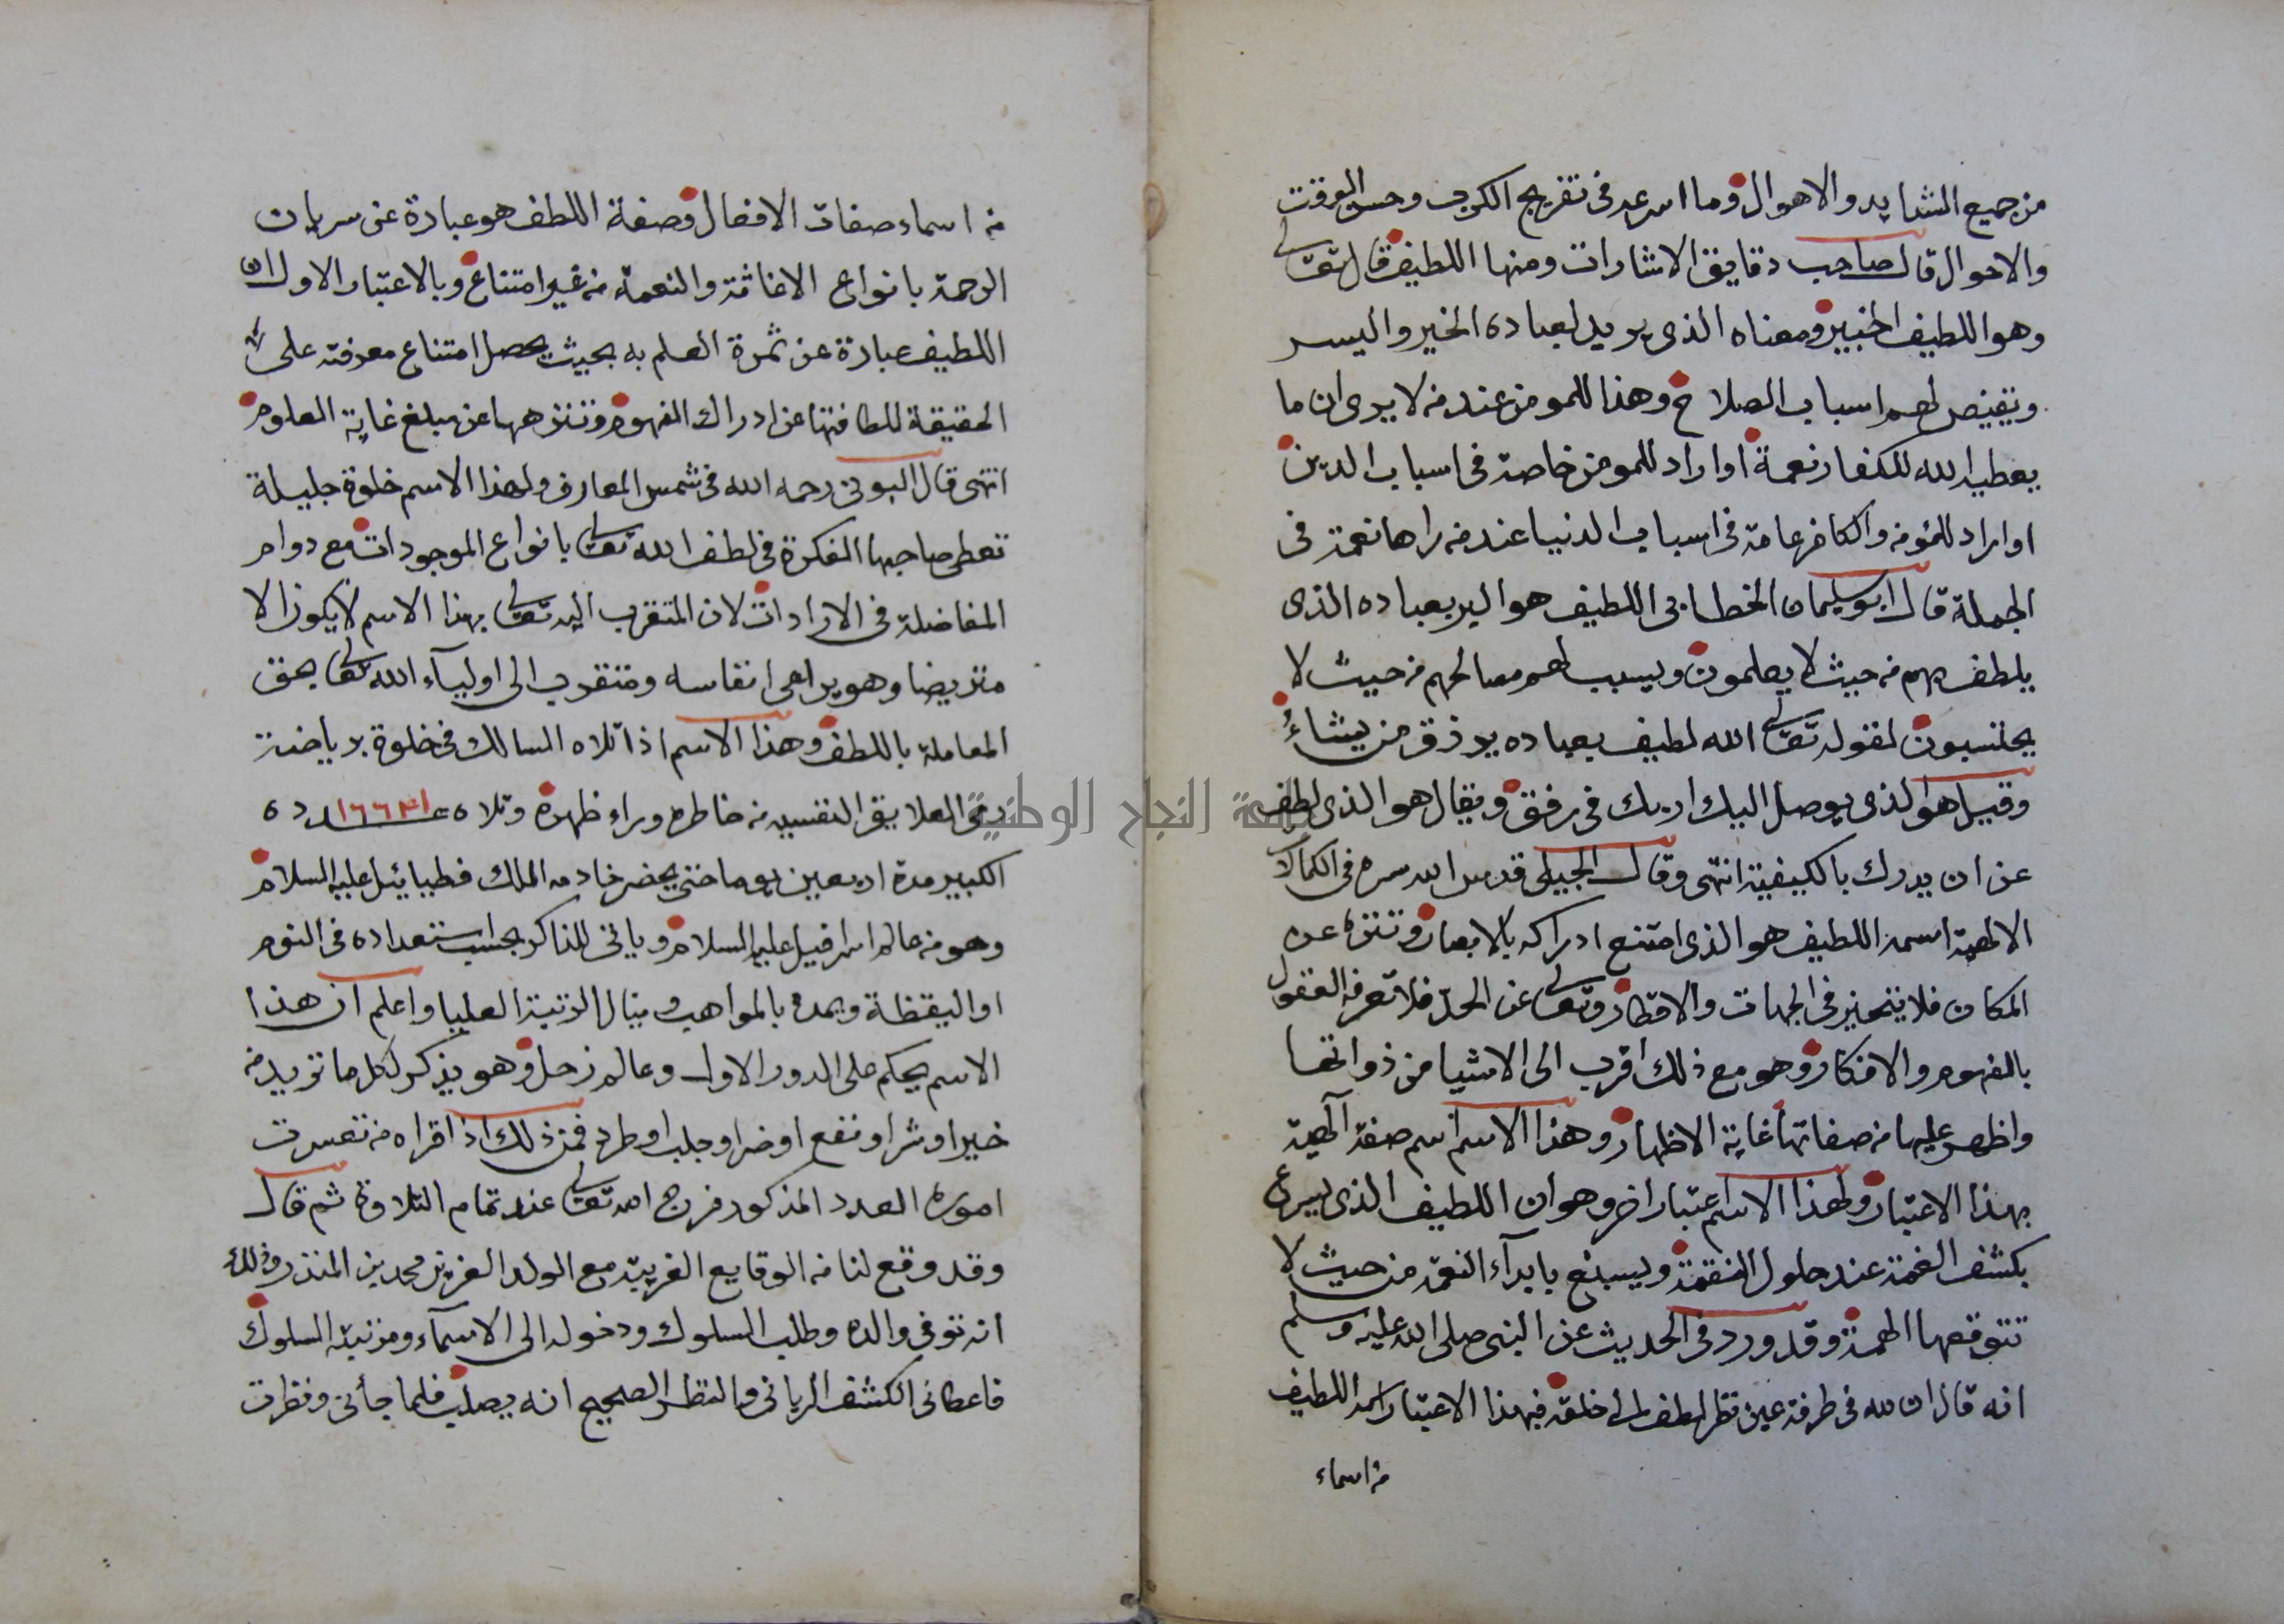 من جميع الشدايد والاهوال وما اسرعه فى تفريج الكرب وحسن الوقت
والاحوال قال صاحب دقايق الاشارات ومنها اللطيف قال تعالى
وهو اللطيف الخبير ومعناه الذى يريد لعباده الخير واليسر
ويقيض لهم اسباب الصلاح وهذا للمومن عند من لا يرى ان ما
يعطيه الله للكفار نعمة او اراد للمومن خاصة فى اسباب الدين
او اراد للمؤمن والكافر عامة فى اسباب الدنيا عند من راها نعمة فى
الجملة قال ابو سليمان الخطابى اللطيف هو البر بعباده الذى
يلطف بهم من حيث لا يعلمون ويسبب لهم مصالحهم من حيث لا
يحتسبون لقوله تعالى الله لطيف بعباده يرزق من يشاءُ
وقيل هو الذى يوصل اليك اربك فى رفق ويقال هو الذى لطف
عن ان يدرك بالكيفية انتهى وقال الجيلى قدس الله سره فى الكمالات
الالهية اسمه اللطيف هو الذى امتنع ادراكه بالابصار وتنزه عن
المكان فلا يتحيز فى الجهات والاقطار وتعالى عن الحد فلا تعرفه العقول
بالفهوم والافكار وهو مع ذلك اقرب الى الاشيا من ذواتها
واظهر عليها من صفاتها غاية الاظهار وهذا الاسم اسم صفة آلهية
بهذا الاعتبار ولهذا الاسم اعتبار اخر وهو ان اللطيف الذى يسرع
بكشف الغمة عند حلول النقمة ويسبغ بابدآء النعمة من حيث لا
تتوقعها الهمة وقد ورد فى الحديث عن النبى صلى الله عليه وسلم
انه قال ان لله فى طرفة عين نظر لطف الى خلقه فبهذا الاعتبار اسمه اللطيف
من اسماء
من اسماء صفات الافعال وصفة اللطف هو عبادة عن سريان
الرحمة بانواع الاغاثة والنعمة من غير امتناع وبالاعتبار الاول ان
اللطيف عبارة عن ثمرة العلم به بحيث يحصل امتناع معرفته على
الحقيقة للطافتها عن ادراك الفهوم وتنزهها عن مبلغ غاية العلوم
انتهى قال البونى رحمه الله فى شمس المعارف ولهذا الاسم خلوة جليلة
تعطى صاحبها الفكرة فى لطف الله تعالى بانواع الموجودات مع دوام
المفاضلة فى الارادات لان المتقرب اليه تعالى بهذا الاسم لا يكون الا
متريضا وهو يراعى انفاسه ومتقرب الى اوليآء الله تعالى بحق
المعاملة باللطف وهذا الاسم اذا تلاه السالك فى خلوة برياضة
رمى العلايق النفسيه من خاطره وراء ظهره وتلاه عدده ١٦٦٤١
الكبير مدة اربعين يوما حتى يحضر خادمه الملك فطيائيل عليه السلام
وهو من عالم اسرافيل عليه السلام وياتى للذاكر بحسب استعداده فى النوم
او اليقظة ويمده بالمواهب وينال الرتبة العليا واعلم ان هذا
الاسم يحكم على الدور الاول وعالم زحل وهو يذكر لكل ما تريد من
خير او شر او نفع او ضر او جلب او طرد فمن ذلك اذا قراه من تعسرت
اموره العدد المذكور فرج الله تعالى عند تمام التلاوة ثم قال
وقد وقع لنا من الوقايع الغريبة مع الولد العزيز محمد بن المنذر وذلك
انه توفى والده وطلب السلوك ودخوله الى الاسمآء ومرتبة السلوك
فاعطانى الكشف الربانى والنظر الصحيح انه يصلب فلما جأنى ونظرت
جامعة النجاح الوطنية